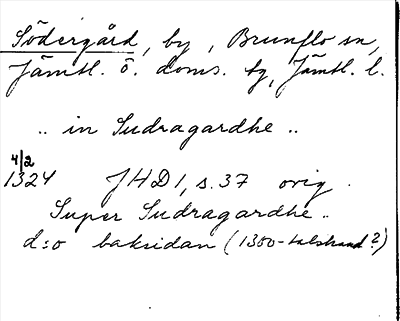 Södergård, by, Brunflo sn,
Jämtl. ö. doms. tg, Jämtl. l.
.. in Sudragardhe ..
4/2
1324 JHD 1, s. 37 orig.
Super Sudragardhe ..
d:o baksidan (1300-talshand?)